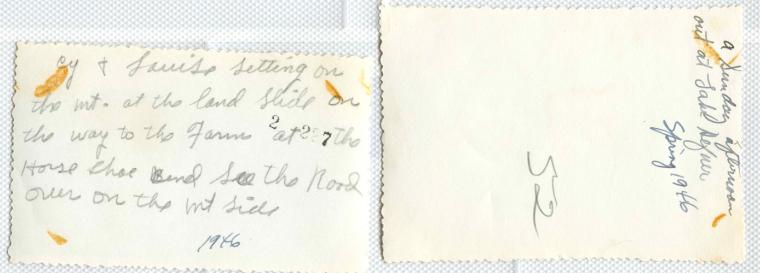 Cy & Louise setting on
the mt. at the land Slide on
the way to the Farm at the
2 227
Horse shoe bend see the Road
over on the mt side
1946
a Sunday afternoon
out at
Spring 1946
52